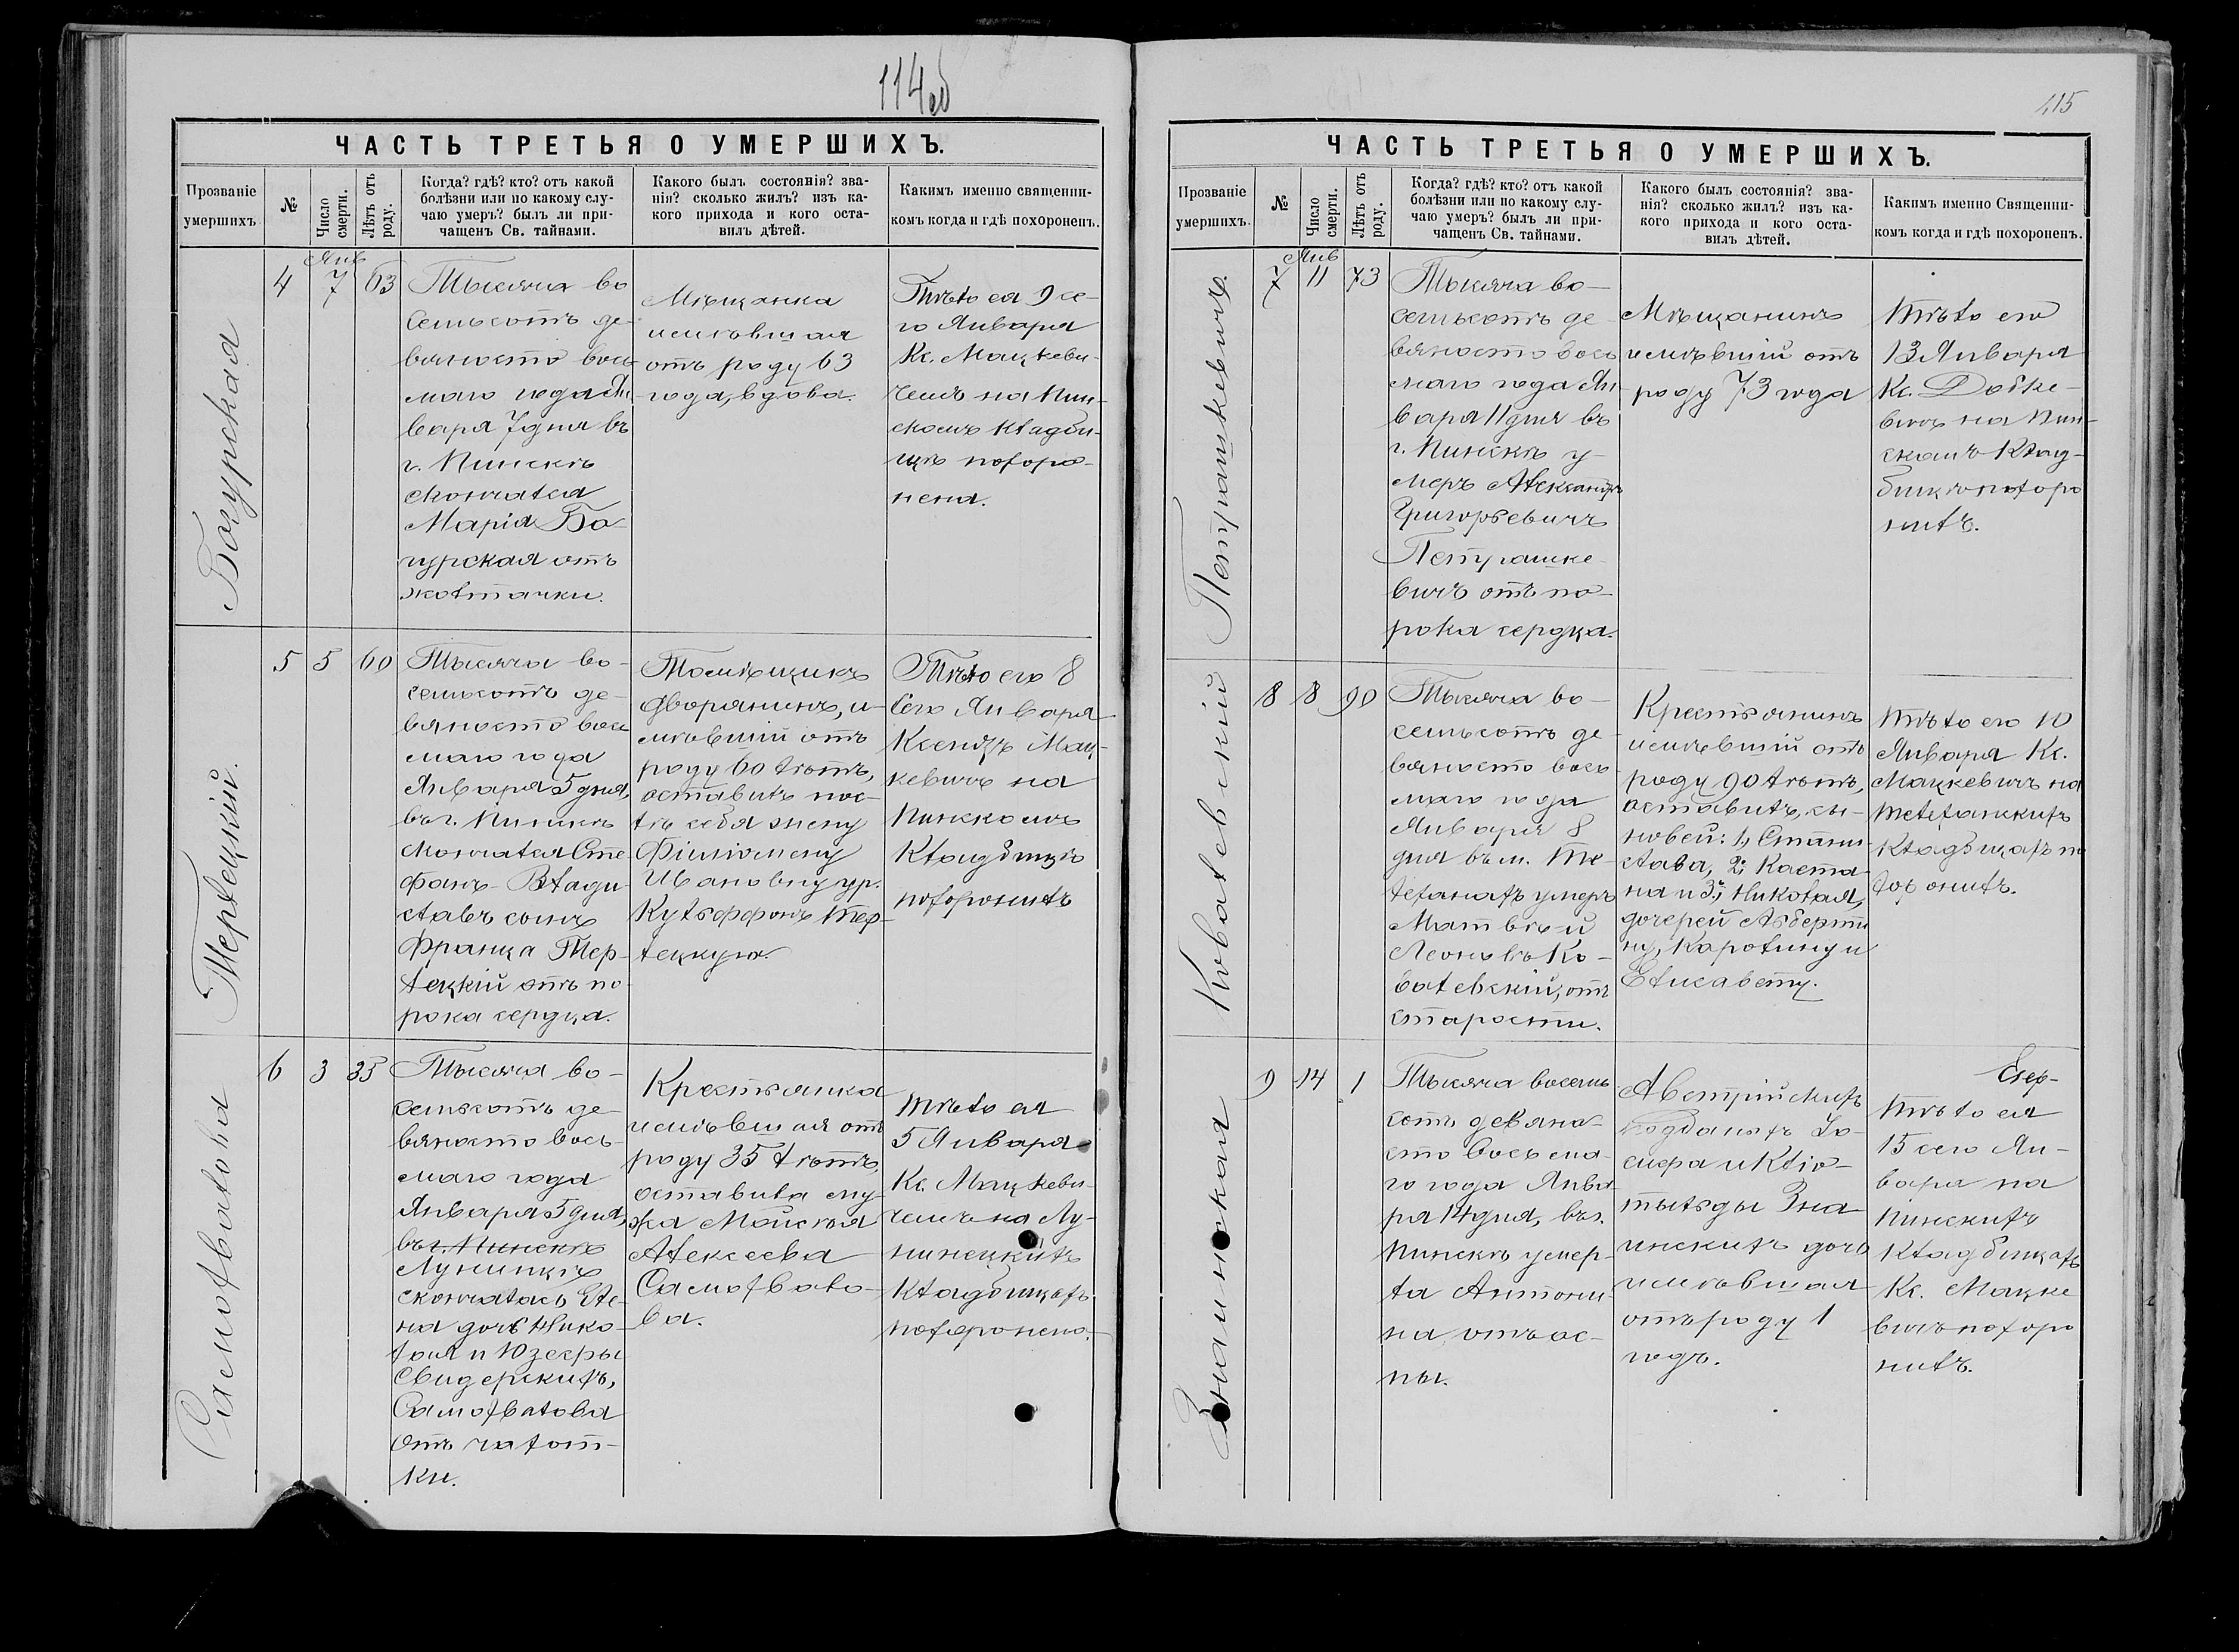 114об
ЧАСТЬ ТРЕТЬЯ О УМЕРШИХЪ.
Прозваніе умершихъ
№
Число смерти.
Лѣтъ отъ роду.
Когда? гдѣ? кто? отъ какой
болѣзни или по какому слу-
чаю умеръ? былъ ли при-
чащенъ Св. тайнами.
Какого былъ состоянія? зва-
нія? сколько жилъ? изъ ка-
кого прихода и кого оста-
вилъ дѣтей.
Какимъ именно священни-
комъ когда и гдѣ похороненъ.
Богурская
4
Янв
7
63
Тысяча во
семьсотъ де-
вяносто вось
маго года Ян
варя 7 дня въ
г. Пинскѣ
скончалась
Марія Бо-
гурская отъ
желтачки.
Мѣщанка
имѣвшая
отъ роду 63
года, вдова.
Тѣло ея 9 се-
го Января
Кс. Мацкеви-
чемъ на Пин-
скомъ кладби-
щѣ похоро-
нена.
Терлецкій.
5
5
60
Тысяча во-
семьсотъ де-
вяносто вось
маго года
Января 5 дня,
въ г. Пинскѣ
скончался Сте-
фанъ-Влади-
славъ сынъ
Франца Тер-
лецкій отъ по-
рока сердца.
Помѣщикъ
дворянинъ, и-
мѣвшій отъ
роду 60 лѣтъ,
оставилъ пос-
лѣ себя жену
Филомену
Ивановну ур.
Кульффонъ Тер-
лецкую.
Тѣло его 8
Сего Января
Ксендзъ Мац-
кевичъ на
Пинскомъ
Кладбищѣ
похоронилъ
Самохвалова
6
3
35
Тысяча во-
семьсотъ де-
вяносто вось-
маго года
Января 5 дня,
въ г. Пинскѣ
Лунинцѣ
скончалась Еле-
на дочь Нико-
лая и Юзефы
Свидерскихъ,
Самохвалова
отъ чахот-
ки.
Крестьянка
имѣвшая отъ
роду 35 лѣтъ,
оставила му-
жа Моисея
Алексеева
Самохвало-
ва.
Тѣло ея
5 Января
Кс. Мацкеви-
чемъ на Лу-
нинецкихъ
Кладбищахъ
похоронено.
115
ЧАСТЬ ТРЕТЬЯ О УМЕРШИХЪ.
Прозваніе умершихъ.
№
Число смерти.
Лѣтъ отъ роду.
Когда? гдѣ? кто? отъ какой
болѣзни или по какому слу-
чаю умеръ? былъ ли при-
чащенъ Св. тайнами.
Какого былъ состоянія? зва-
нія? сколько жилъ? изъ ка-
кого прихода и кого оста-
вилъ дѣтей.
Какимъ именно Священни-
комъ когда и гдѣ похороненъ.
Петрашкевичъ.
7
Янв
11
73
Тысяча во-
семьсотъ де-
вяносто вось
маго года Ян
варя 11 дня въ
г. Пинскѣ у-
меръ Александръ
Григорьевичъ
Петрашке-
вичъ отъ по-
рока сердца.
Мѣщанинъ
имѣвшій отъ
роду 73 года
Тѣло его
13 Января
Кс. Дойке-
вичъ на Пин-
скомъ Клад-
бищѣ похоро
нилъ.
Ковалевскій
8
8
90
Тысяча во-
семьсотъ де-
вяносто вось
маго года
Января 8
дня въ м. Те-
леханахъ умеръ
Матвѣй
Леоновъ Ко-
валевскій, отъ
старости.
Крестьянинъ
имѣвшій отъ
роду 90 лѣтъ,
оставилъ, сы-
новей: 1, Стани-
слава, 2, Каэта-
на и 3, Николая,
дочерей Альберти
ну, Каролину и
Елисавету.
Тѣло его 10
Января Кс.
Мацкевичъ на
Телеханскихъ
Кладбищахъ по
хоронилъ.
Знаинская
9
14
1
Тысяча восемь
сотъ девяно-
сто восьма-
го года Янва
ря 14 дня, въ г.
Пинскѣ умер-
ла Антони-
на, отъ ос-
пы.
Австрійскихъ
подданыхъ Іо-
сифа и Клю-
тыльды Зна-
инскихъ дочь
имѣвшая
отъ роду 1
годъ.
Тѣло ея
15 сего Ян-
варя на
Пинскихъ
Кладбищахъ
Кс. Мацке
вичъ похоро
нилъ.